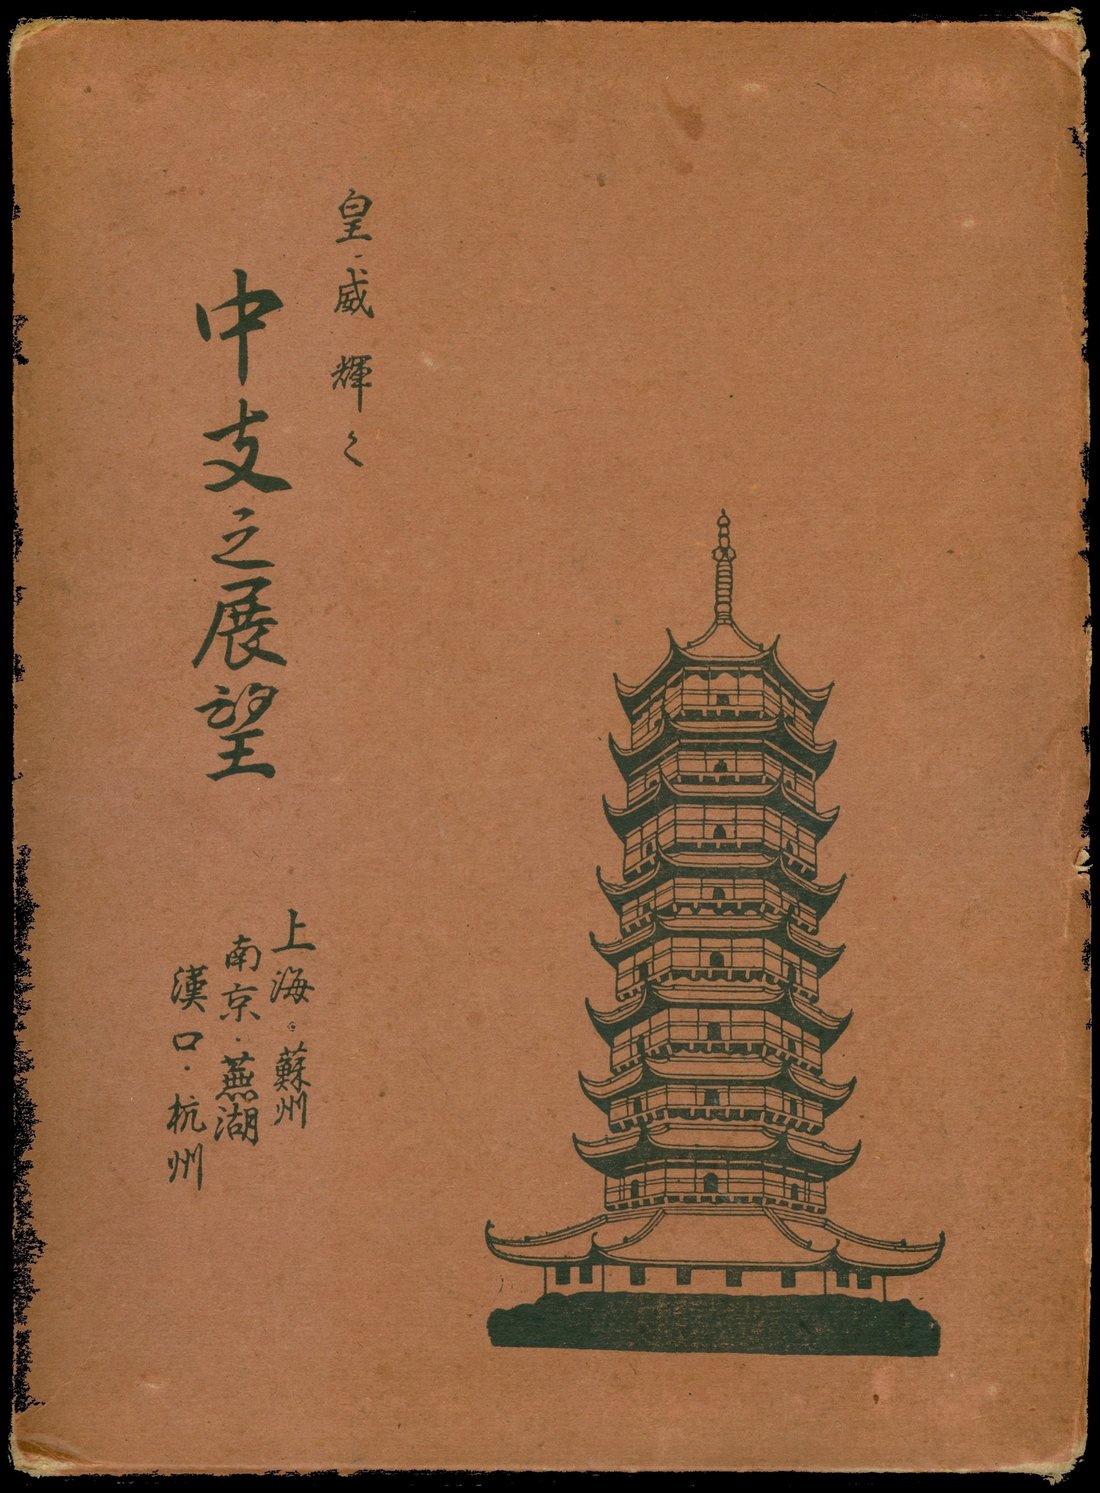 皇威輝く
中支之展望
上海・蘇州
南京・蕪湖
漢口・杭州